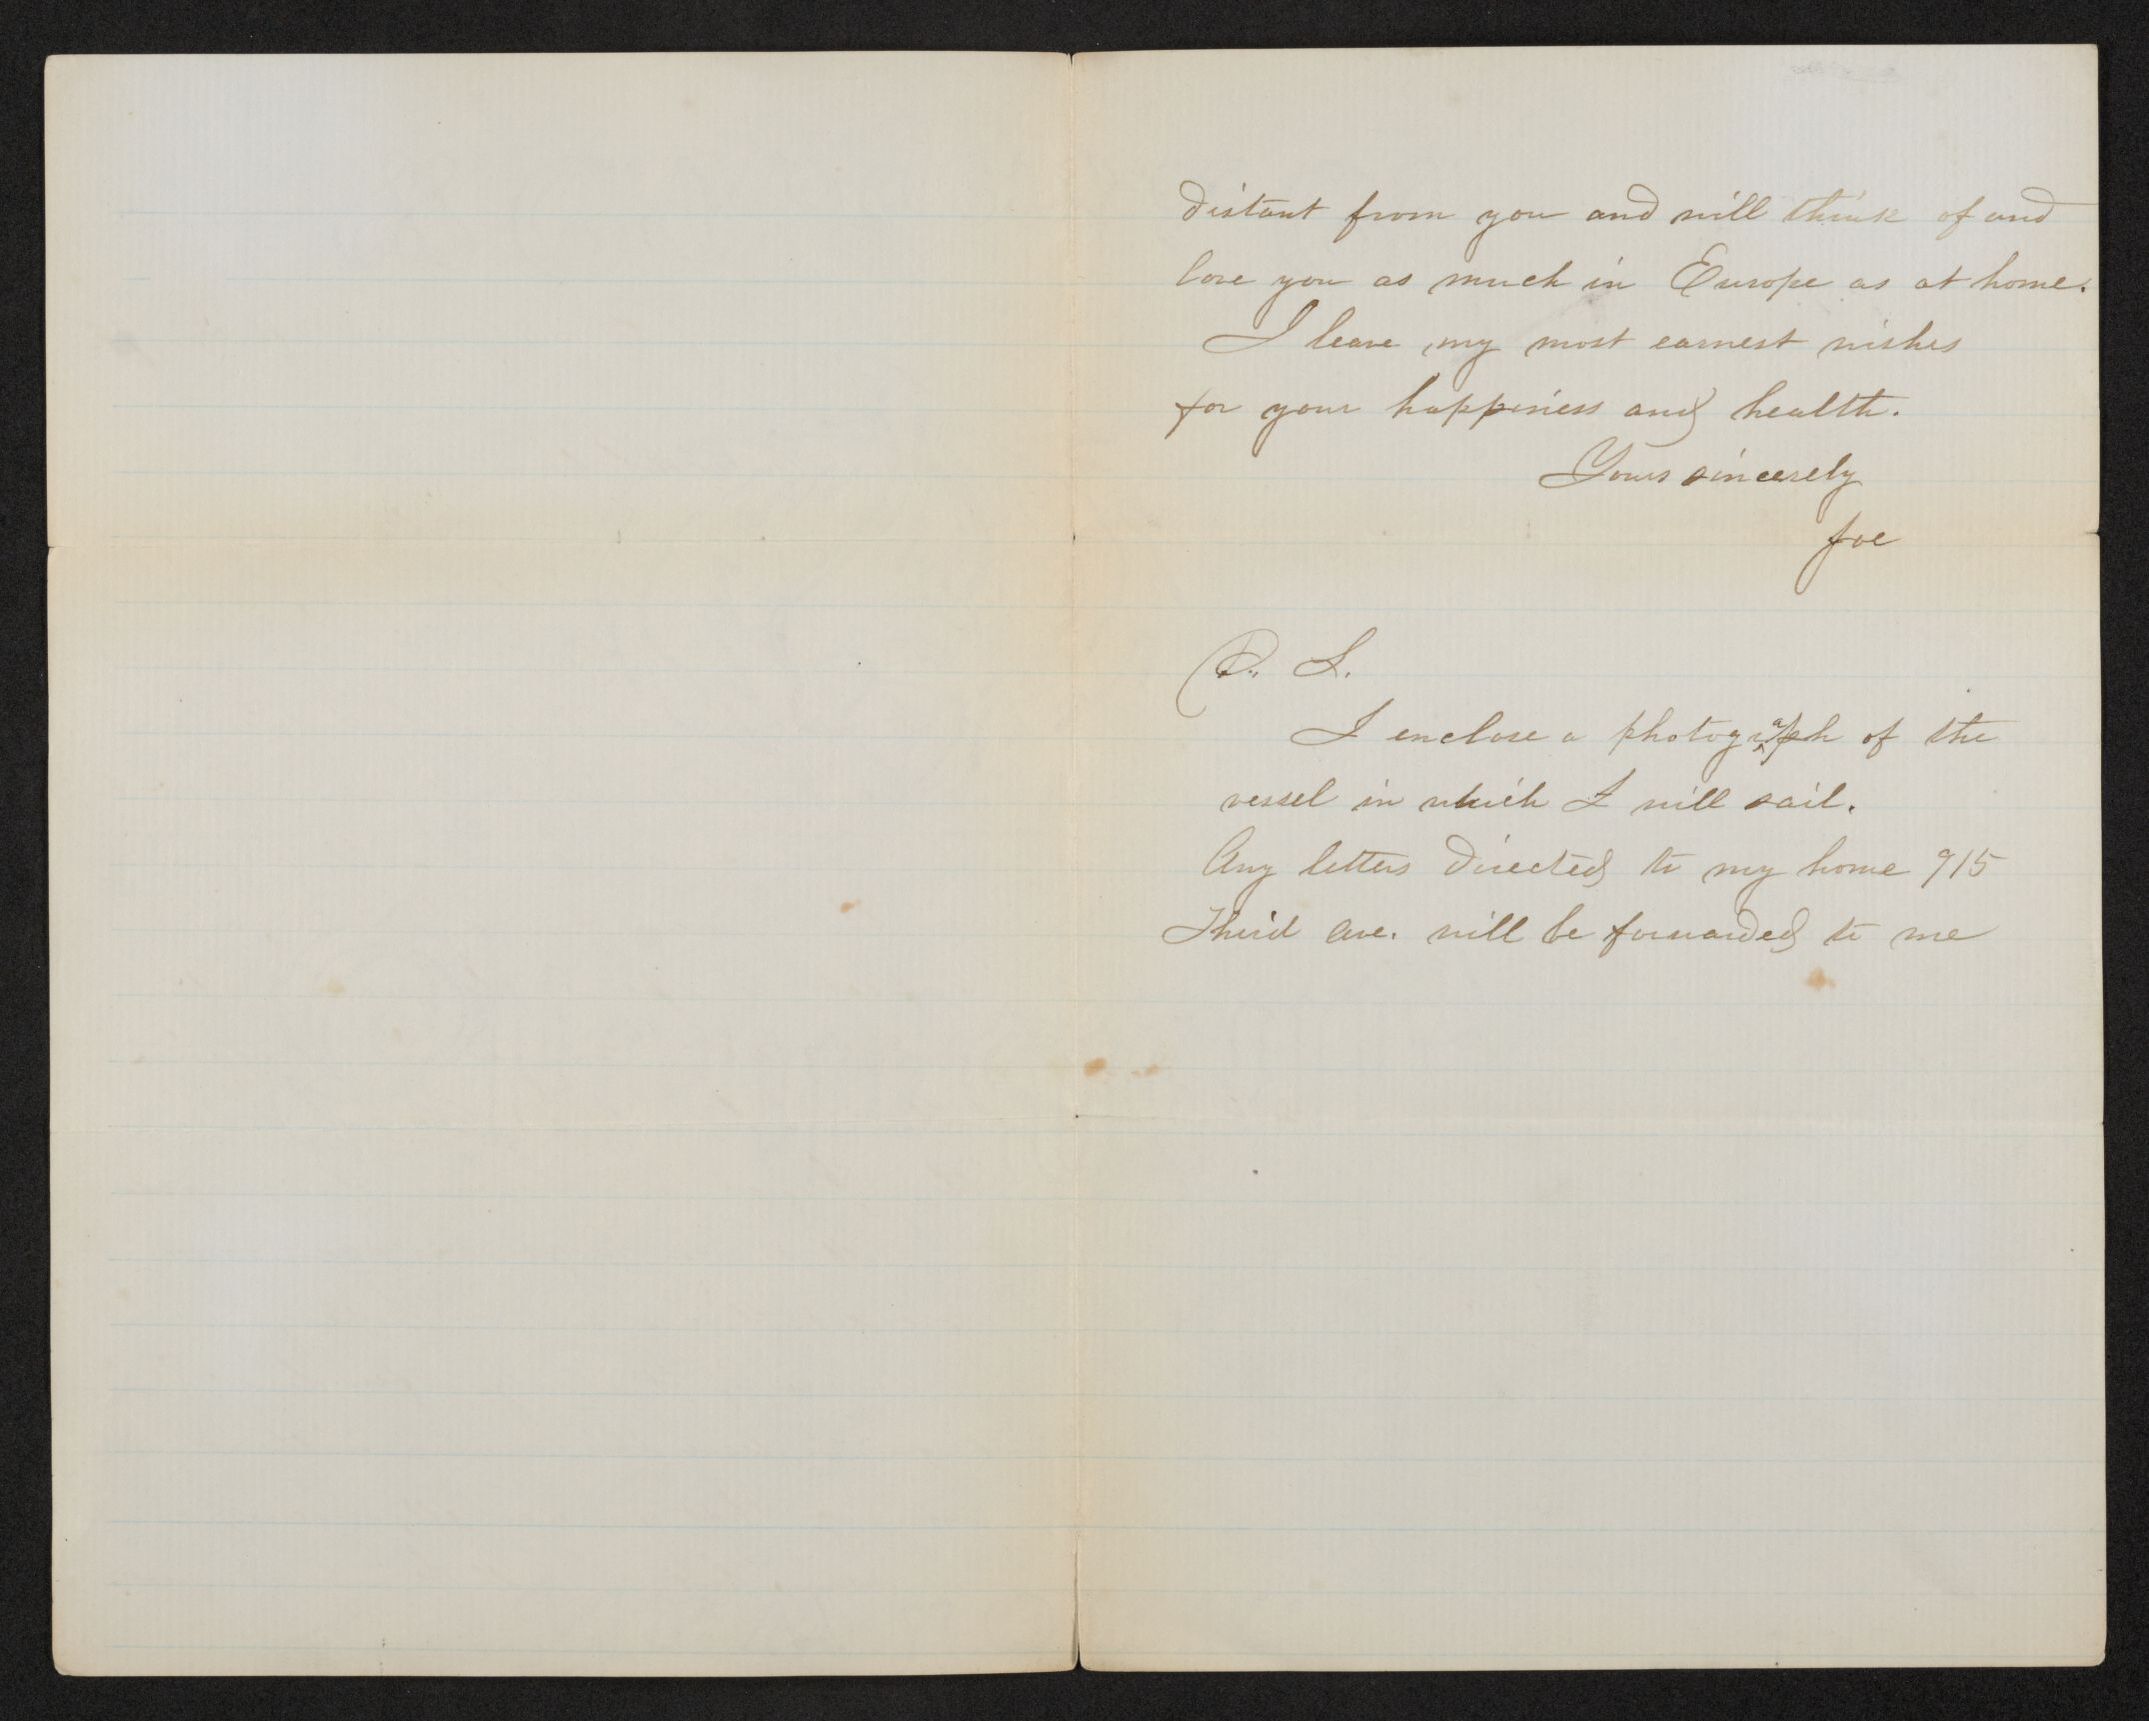 distant from you and will think of and
love you as much in Europe as at home.
I leave my most earnest wishes
for your happiness and health.
Yours sincerely
Joe
P. S.
I enclose a photograph of the
vessel in which I will sail.
Any letters directed to my home 915
Third Ave. will be forwarded to me